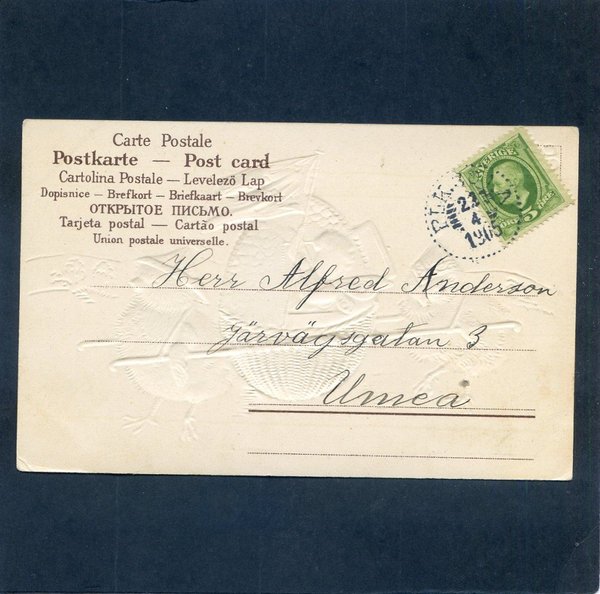 Carte Postale
Postkarte — Post card
Cartolina Postale — Levelező Lap
Dopisnice — Brefkort — Briefkaart — Brevkort
ОТКРЫТОЕ ПИСЬМО.
Tarjeta postal — Cartão postal
Union postale universelle.
SVERIGE
5
22
4
1905
Herr Alfred Anderson
Järvägsgatan 3
Umeå